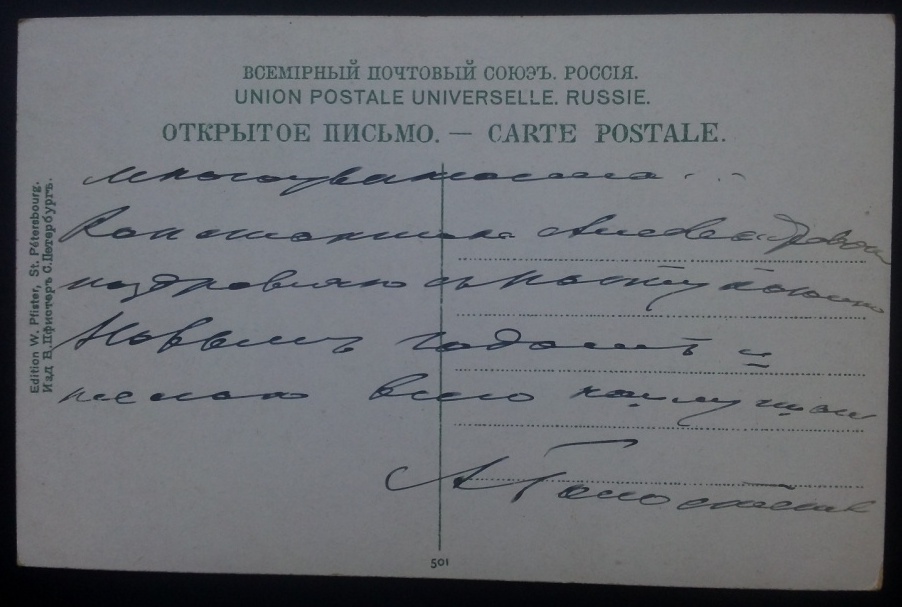 ВСЕМІРНЫЙ ПОЧТОВЫЙ СОЮЗЪ. РОССІЯ.
UNION POSTALE UNIVERSELLE. RUSSIE.
ОТКРЫТОЕ ПИСЬМО. — CARTE POSTALE.
Edition W. Pfister, St. Pétersbourg.
Изд. В. Пфистеръ С.Петербургъ.
Многоуважаемая
поздравляю съ наступающимъ
Новымъ годомъ и
желаю всего наилучшаго
501